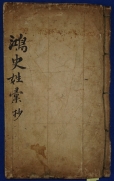 鴻史姓彙抄